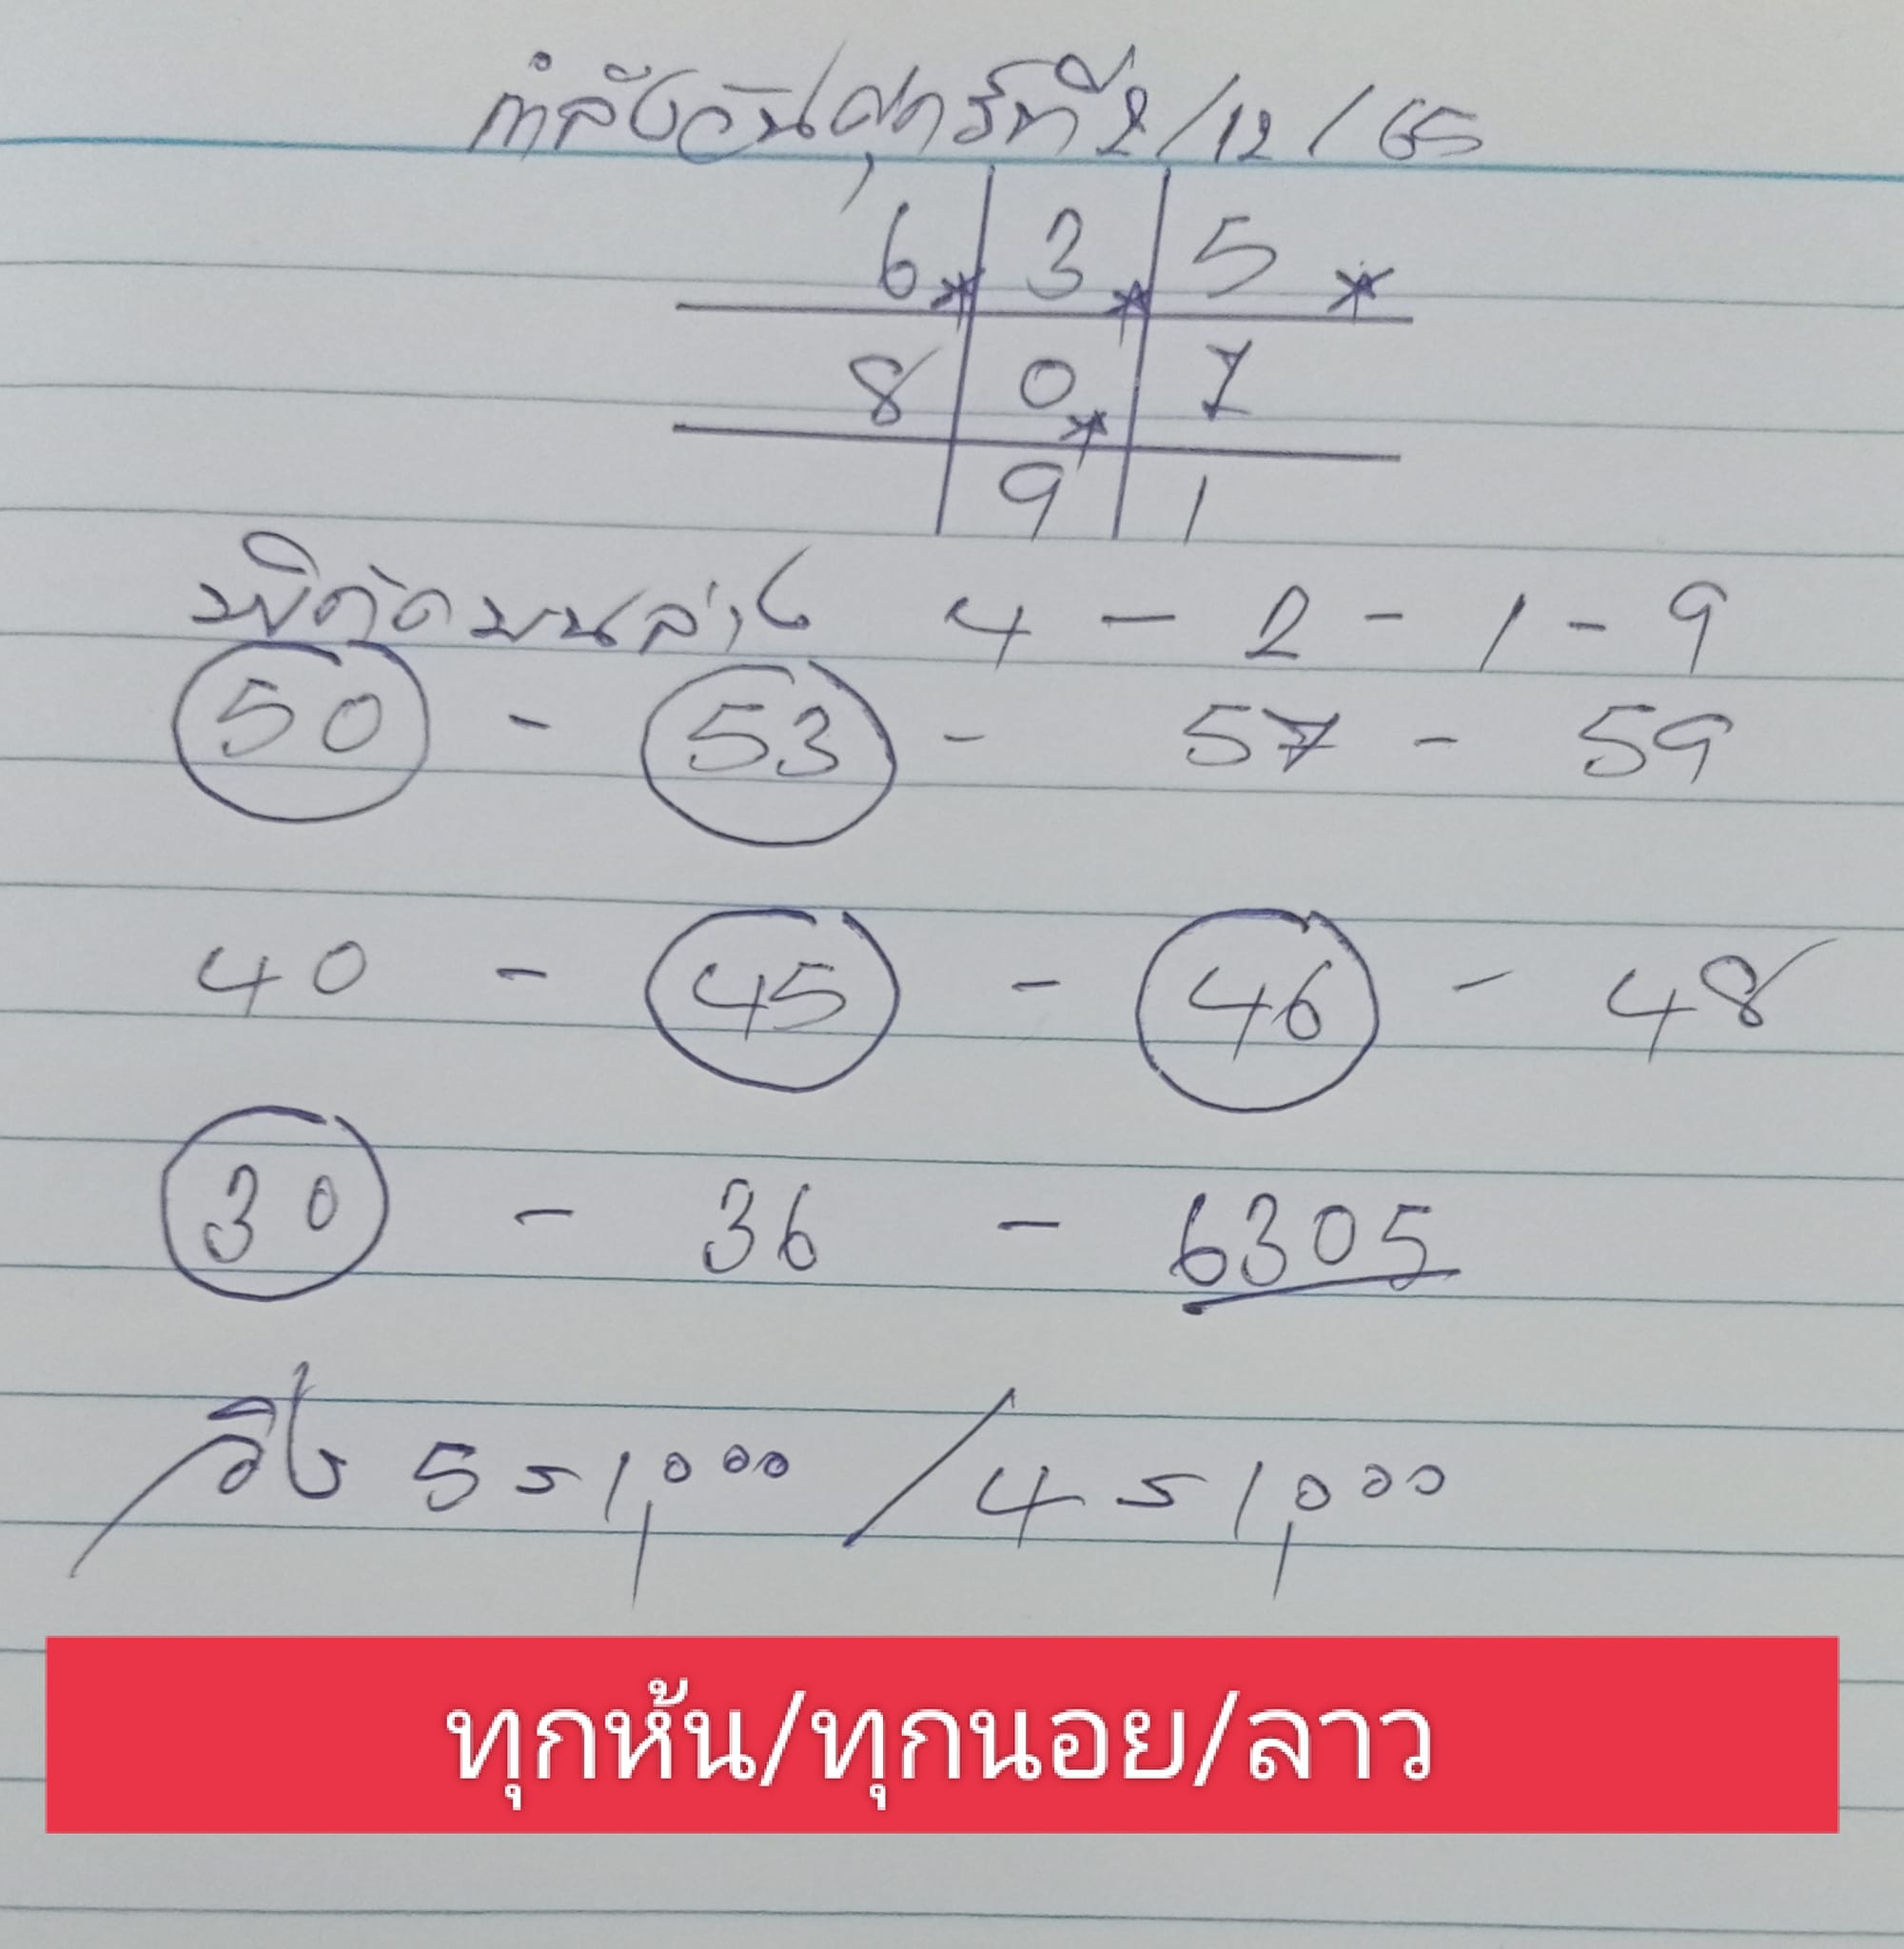 กำลังวันศุกร์ที่ 2/12/65
6* 3* 5 *
8 0* 7
9 1
พิกัดบนล่าง 4 - 2 - 1 - 9
50 - 53 - 57 - 59
40 - 45 - 46 - 48
30 - 36 - 6305
วิ่ง 5 = 1,000 / 4 = 1,000
ทุกหุ้น/ทุกนอย/ลาว